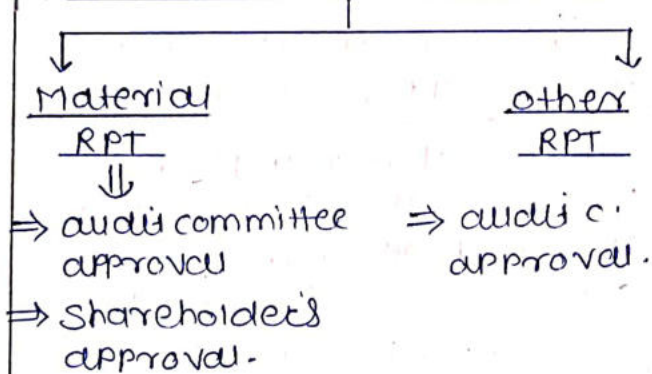 Material
RPT
⇒ audit committee
approval
⇒ shareholder's
approval.
other
RPT
⇒ audit c.
approval.